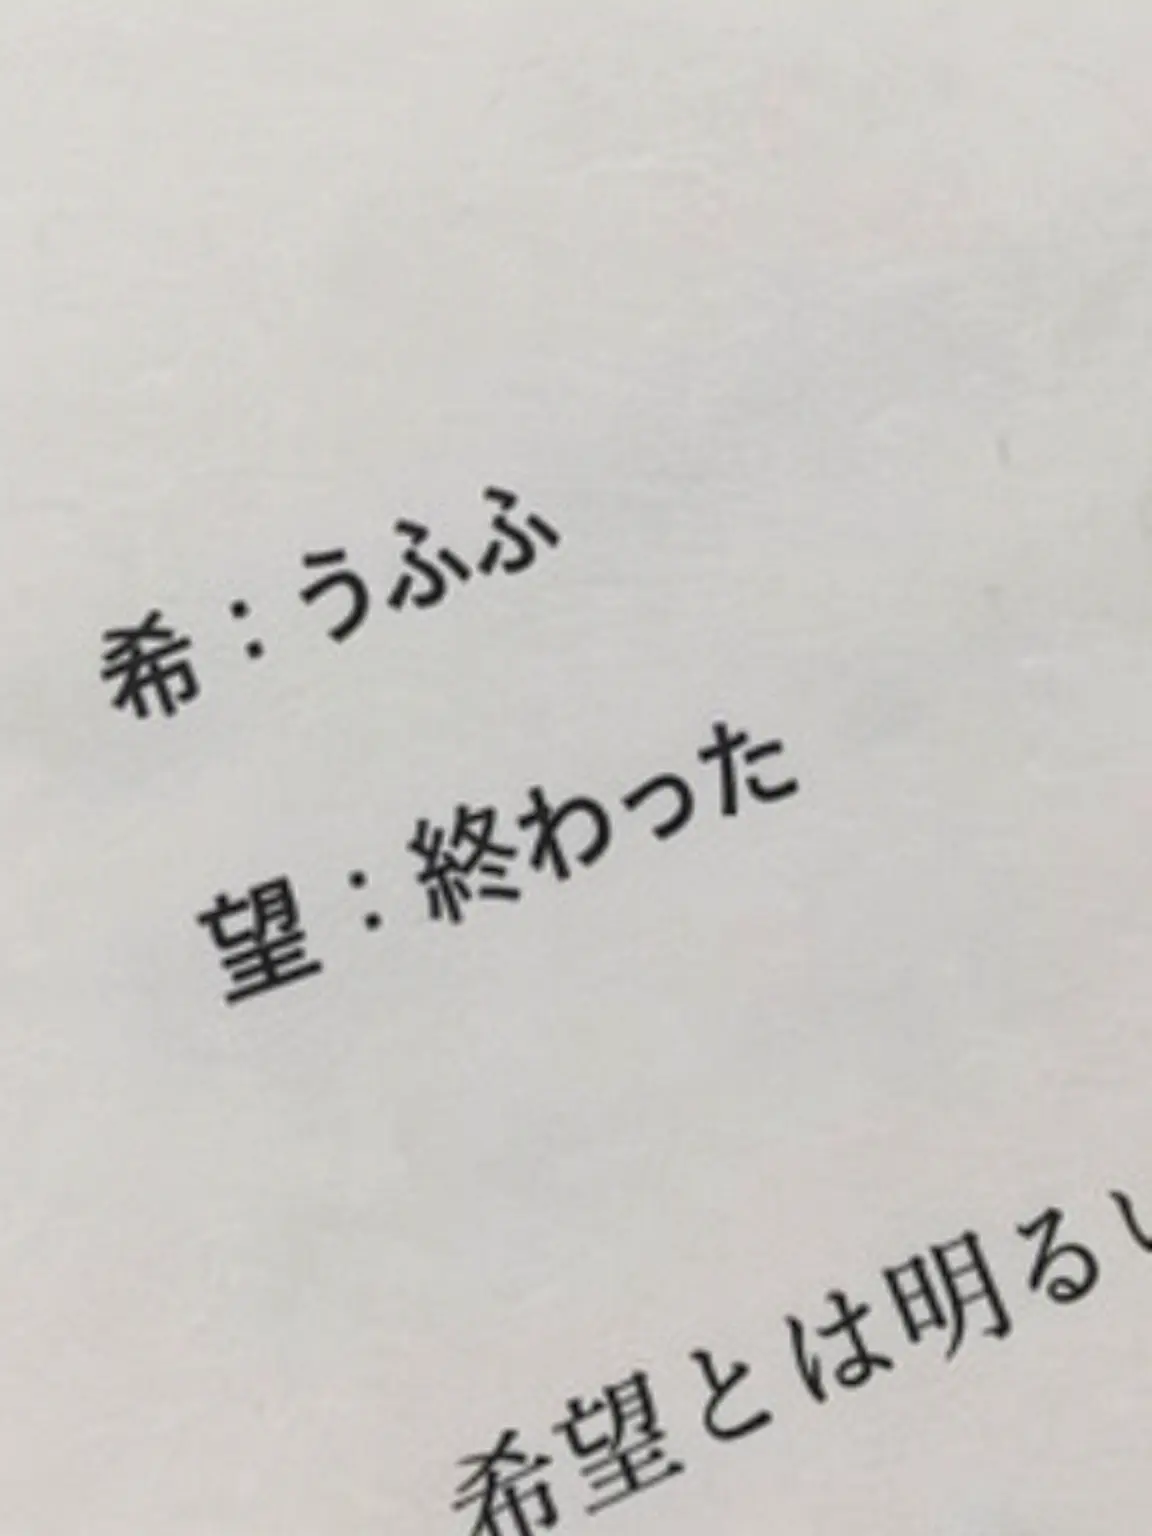 希：うふふ
望：終わった
希望とは明るい